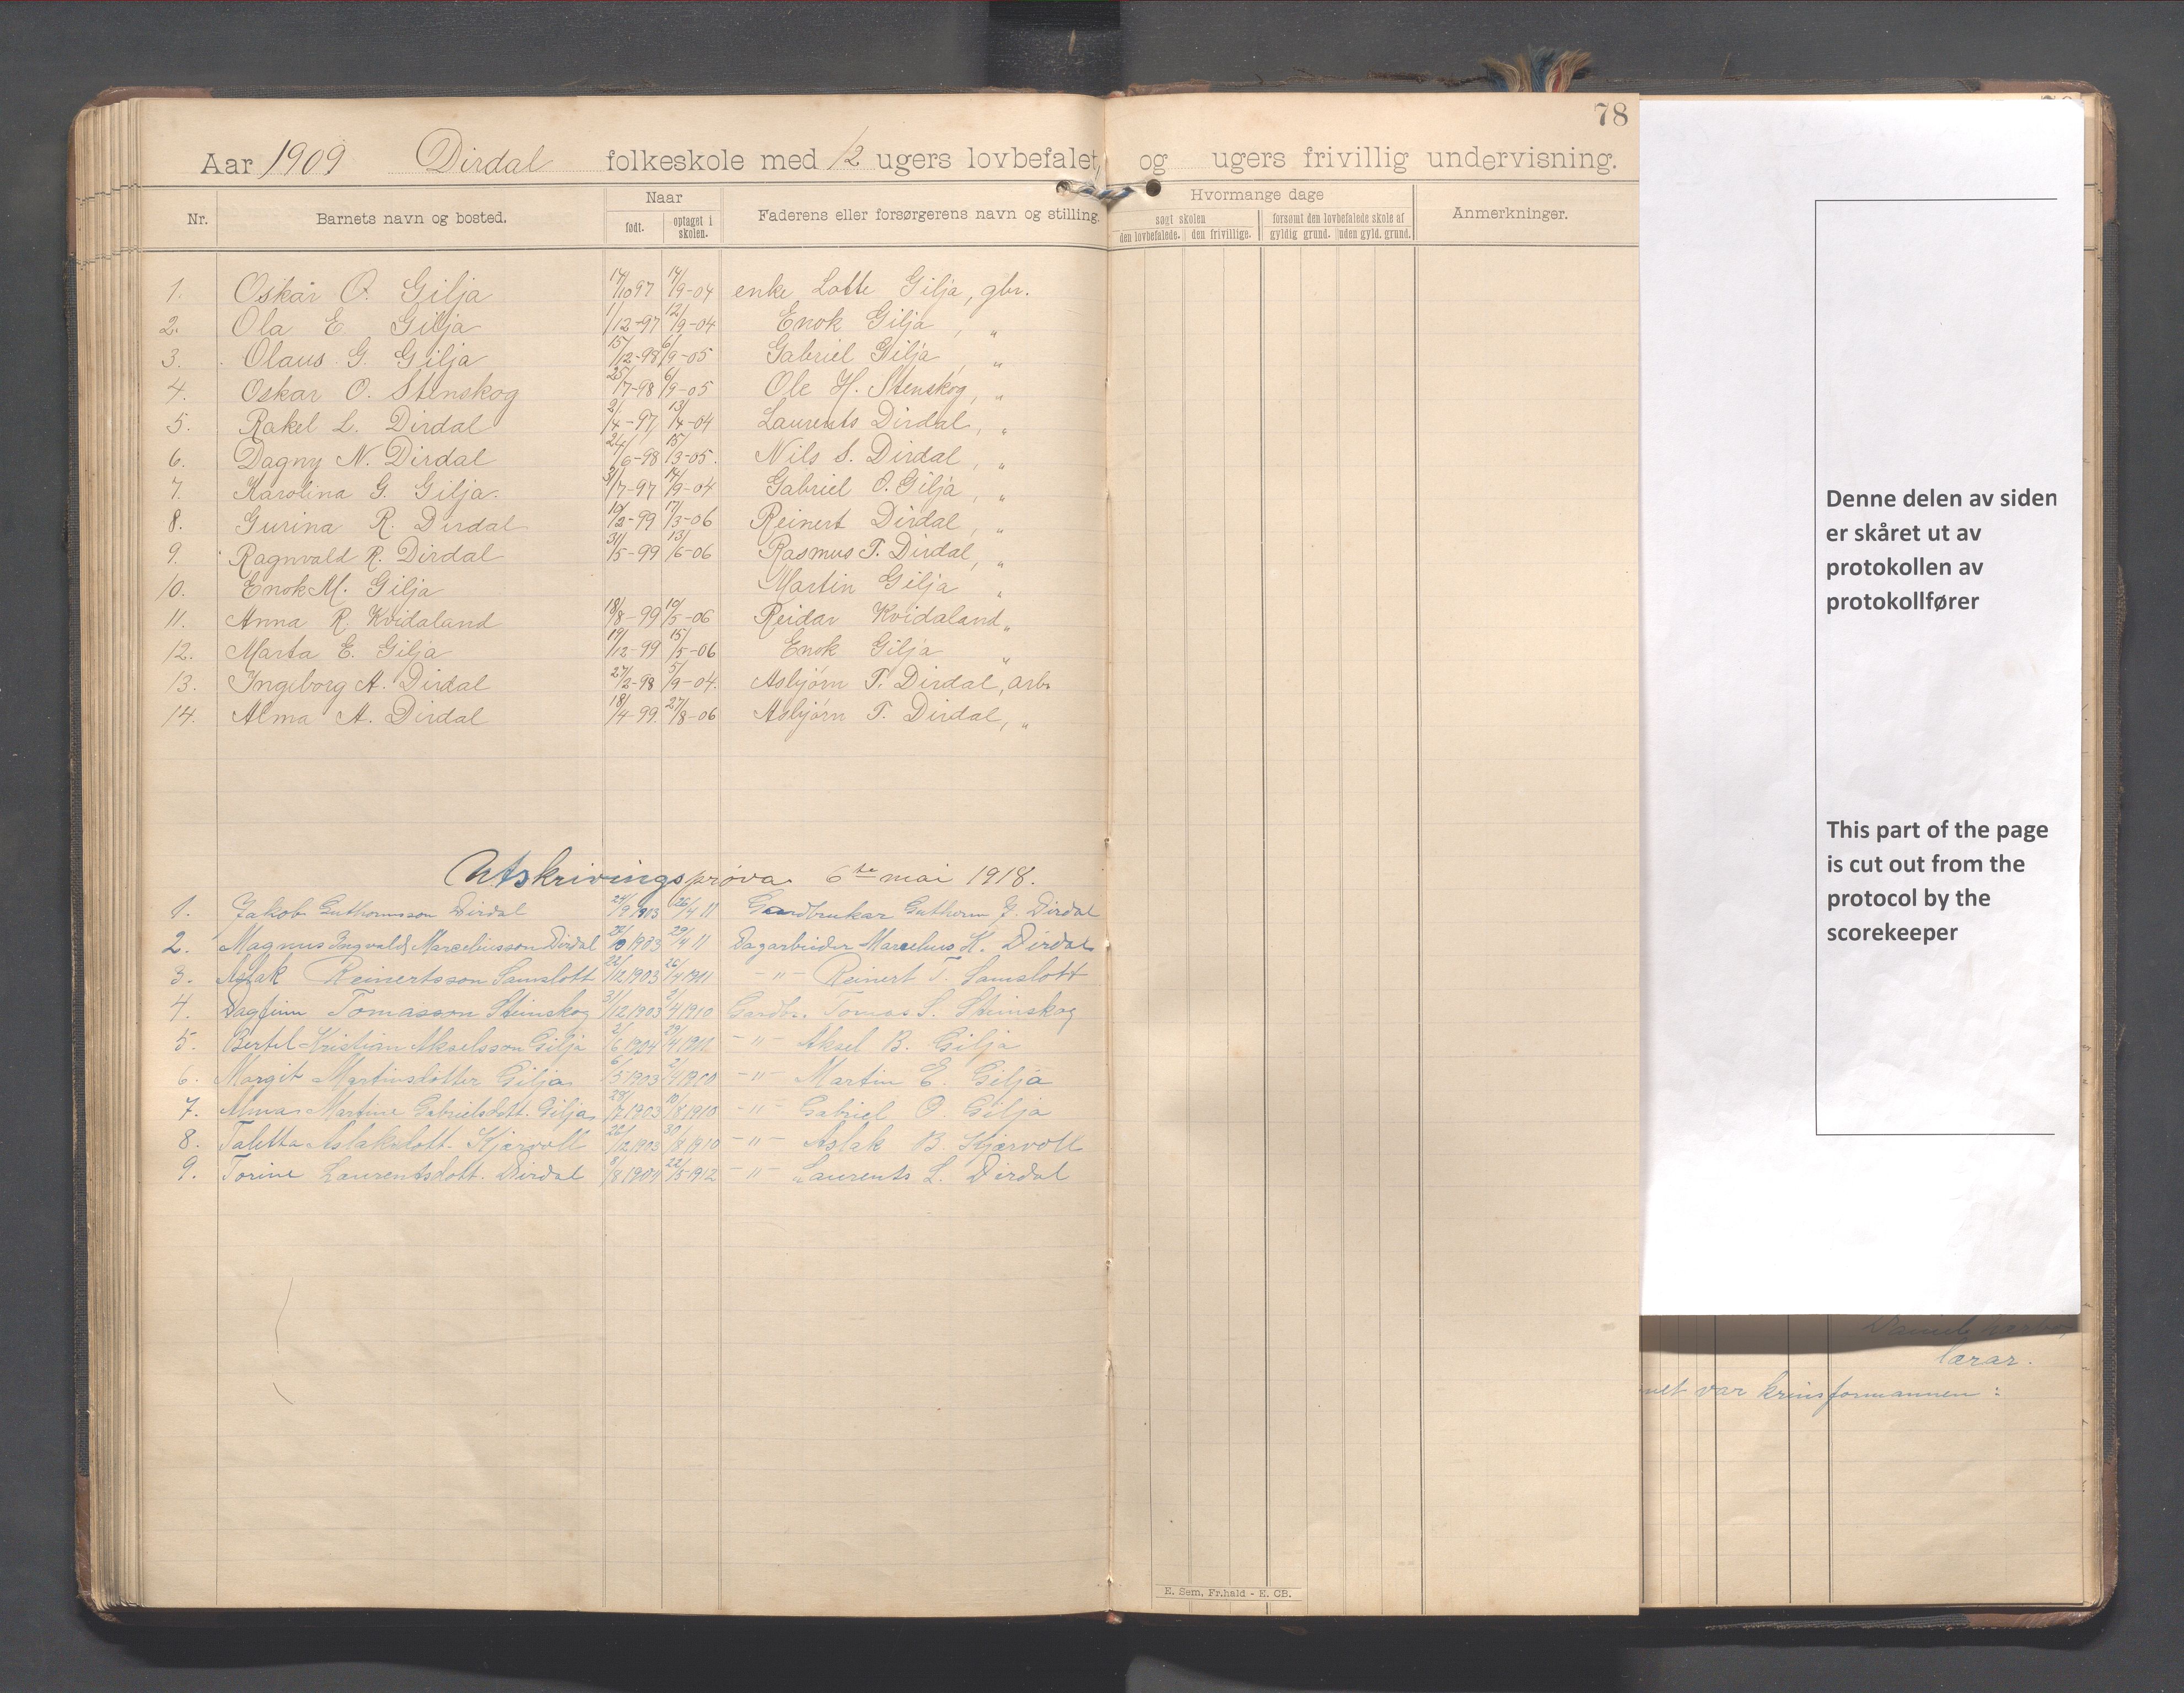 78
Aar 1909 Dirdal folkeskole med 12 ugers lovbefalet og ugers frivillig undervisning.
Nr. Barnets navn og bosted. Naar født. optaget i skolen. Faderens eller forsørgerens navn og stilling. Hvormange dage søgt skolen den lovbefalede. den frivillige. forsømt den lovbefalede skole af gyldig grund. uden gyld. grund. Anmerkninger.
1. Oskar O. Gilja 14/10 97 14/9-04 enke Lotte Gilja, gbr.
2. Ola E. Gilja 1/12-97 12/9-04 Enok Gilja, "
3. Olaus G. Gilja 15/12-98 6/9-05 Gabriel Gilja, "
4. Oskar O. Stenskog 25/7-98 6/9-05 Ole H. Stenskog, "
5. Rakel L. Dirdal 2/4-97 13/4-04 Laurents Dirdal, "
6. Dagny N. Dirdal 24/6-98 15/3-05. Nils S. Dirdal, "
7. Karolina G. Gilja. 31/7-97 14/9-04 Gabriel O. Gilja, "
8. Gurina R. Dirdal 19/2-99 17/3-06 Reinert Dirdal, "
9. Ragnvald R. Dirdal 31/5-99 13/6-06 Rasmus T. Dirdal, "
10. Enok M. Gilja Martin Gilja "
11. Anna R. Kvidaland 18/8-99 19/5-06 Reidar Kvidaland "
12. Marta E. Gilja 19/12-99 15/5-06 Enok Gilja "
13. Ingeborg A. Dirdal 27/2-98 5/9-04. Asbjörn T. Dirdal, arb.
14. Alma A. Dirdal 18/4-99. 27/8-06 Asbjörn T. Dirdal, "
Utskrivingsprøva 6te mai 1918.
1. Jakob Guthormsson Dirdal 24/9 1903 26/4 11 Gardbrukar Guthorm J. Dirdal
2. Magnus Ingvald Marseliusson Dirdal 1903 29/4 11 Dagarbeider Marselius K. Dirdal
3. Aslak Reinertsson Samslott 22/12 1903 26/4 1911 -"- Reinert T. Samslott
4. Dagfinn Tomasson Steinskog 31/12 1903 2/4 1910 Gardbr. Tomas S. Steinskog
5. Bertel Kristian Akselsson Gilja 2/6 1904 29/4 1911 -"- Aksel B. Gilja
6. Margit Martinsdotter Gilja 6/5 1903 2/4 1910 -"- Martin E. Gilja
7. Alma Martine Gabrielsdott. Gilja 1903 10/8 1910 -"- Gabriel O. Gilja
8. Taletta Aslaksdott. Kjærvoll 26/12 1903 30/8 1910 -"- Aslak B. Kjærvoll
9. Torine Laurentsdott. Dirdal 8/8 1904 22/5 1912 -"- Laurents L. Dirdal
E. Sem, Fr.hald - E. CB.
Denne delen av siden
er skåret ut av
protokollen av
protokollfører
This part of the page
is cut out from the
protocol by the
scorekeeper
lærar.
var krinsformannen :